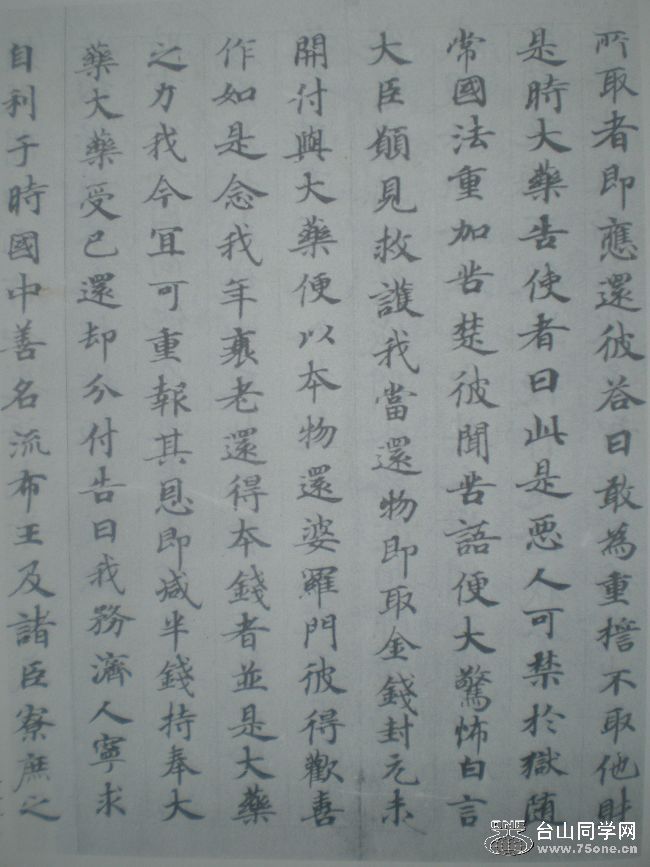 所取者即應還彼答曰敢為重擔不取他財
是時大藥告使者曰此是惡人可禁於獄随
常國法重加苦楚彼聞苦語便大驚怖白言
大臣願見救護我當還物即取金錢封元未
開付與大藥便以本物還婆羅門彼得歡喜
作如是念我年衰老還得本錢者並是大藥
之力我今冝可重報其恩即減半錢持奉大
藥大藥受已還却分付告曰我務濟人寧求
自利于時國中善名流布王及諸臣寮庶之
ONE
台山同学网
www.75one.cn